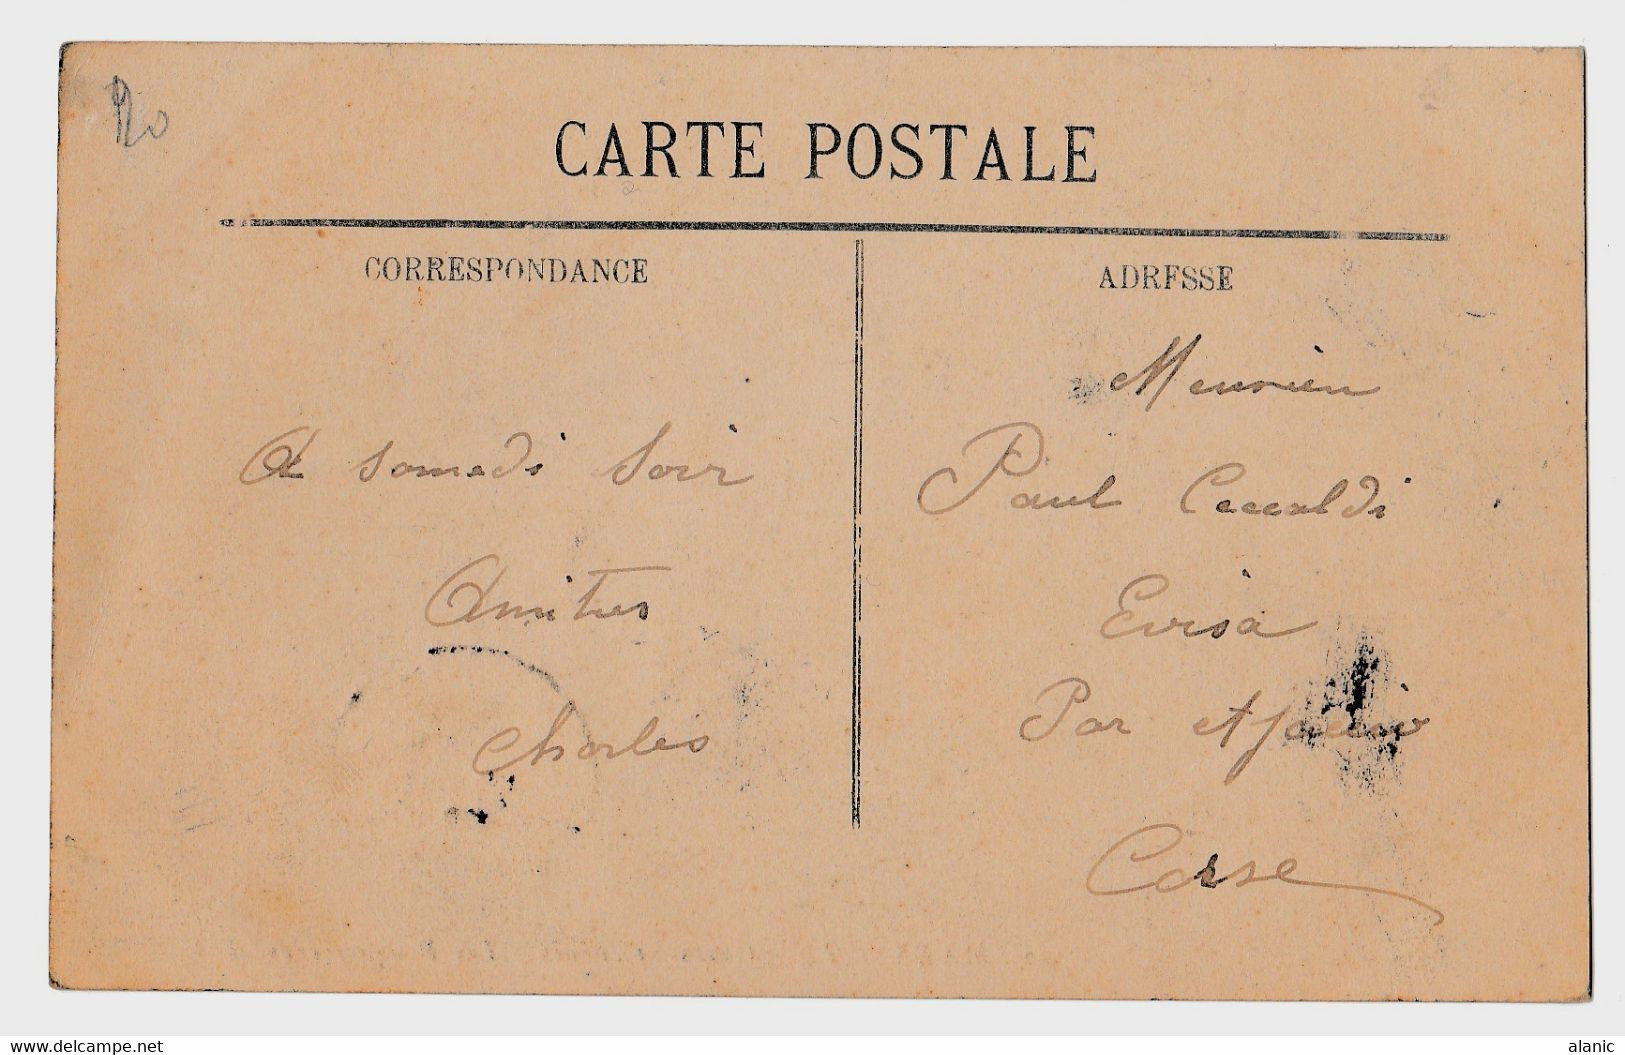 CARTE POSTALE
CORRESPONDANCE
A samedi soir
Amitiés
Charles
ADRESSE
Monsieur
Paul Ceccaldi
Evisa
Par Ajaccio
Corse
www.delcampe.net
alanic